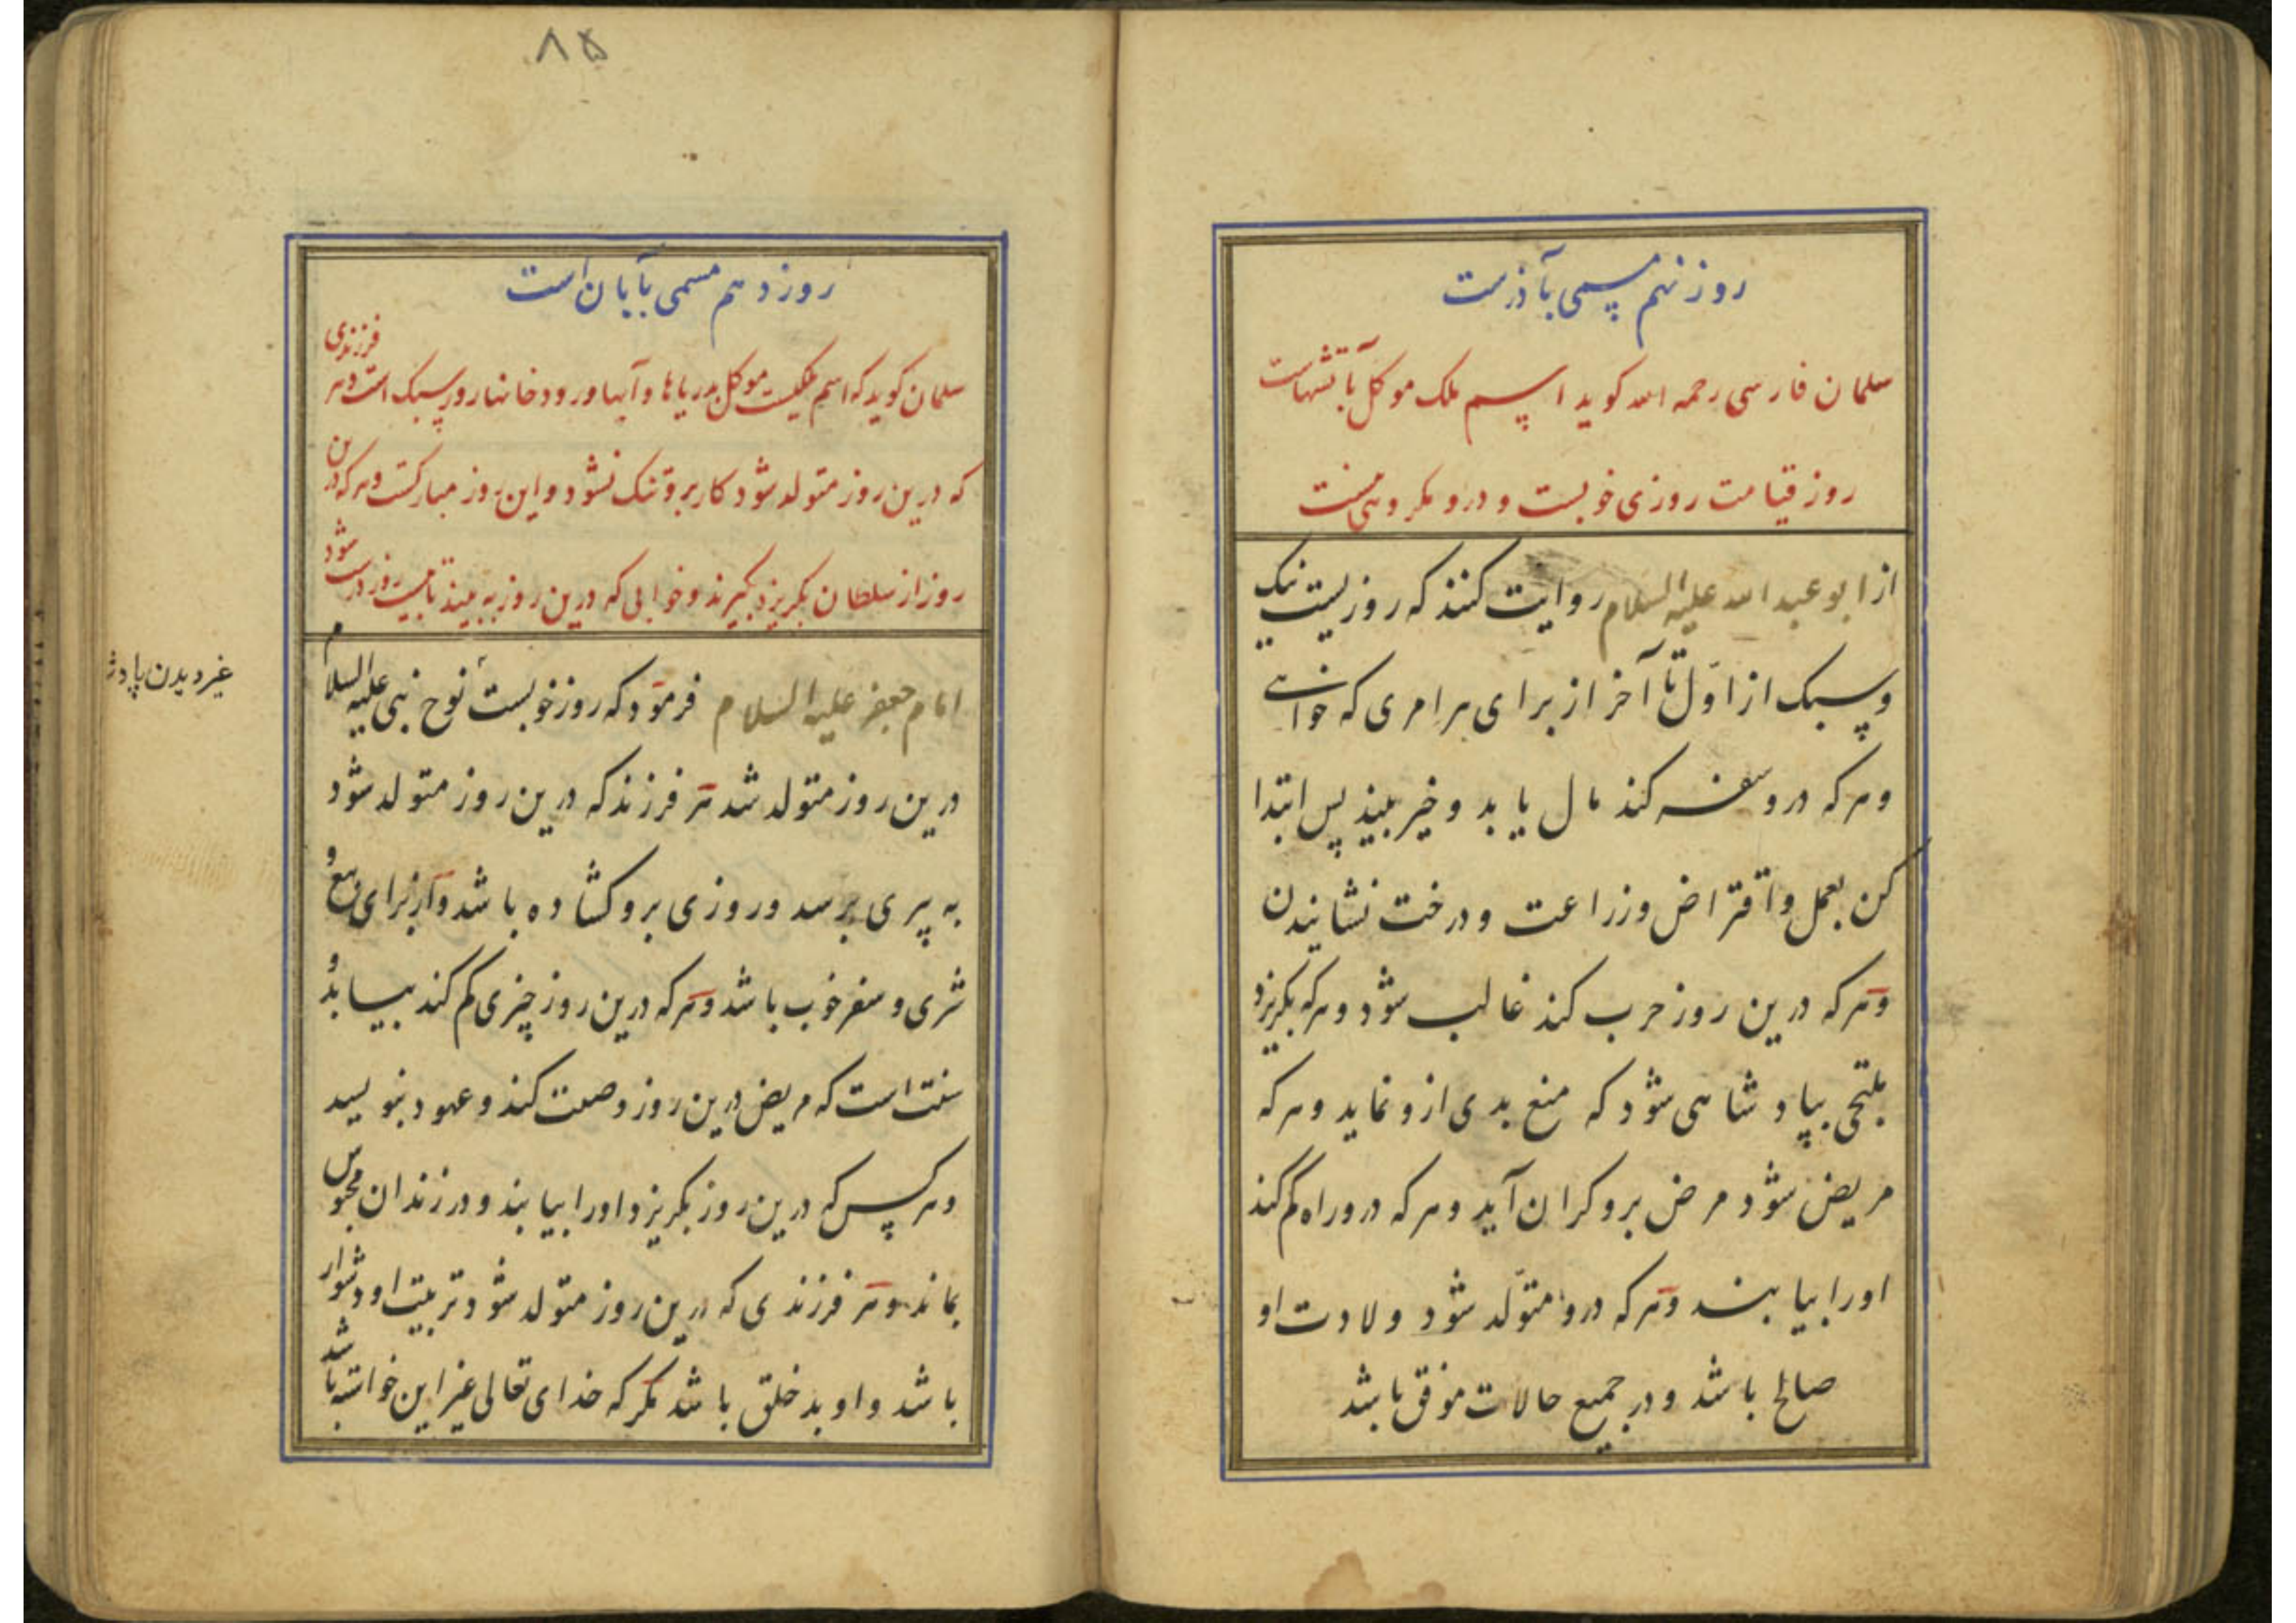 روز نهم مسمی بآذرست
سلمان فارسی رحمه الله کوید اسم ملک موکل بآتشهاست
روز قیامت روزی خوبست و درو مکروهی نیست
از ابو عبد الله علیه السلام روایت کنند که روزیست نیک
و سبک از اول تا آخر از برای هر امری که خواهی
و هر که درو سفر کند مال یابد و خیر بیند پس ابتدا
کن بعمل و اقتراض و زراعت و درخت نشایندن
و هر که درین روز حرب کند غالب شود و هر که بکریزد
ملتجی بپادشاهی شود که منع بدی ازو نماید و هر که
مریض شود مرض برو کران آید و هر که درو راه کم کند
او را بیابند و هر که درو متولد شود ولادت او
صالح باشد و در جمیع حالات موفق باشد
۸۵
روز دهم مسمی بآبان است
سلمان کوید که اسم ملکیست موکل بدریاها و آبها و رودخانها روز سبک است و هر فرزندی
که درین روز متولد شود کار برو تنک نشود و این روز مبارکست و هر که درین
روز از سلطان بکریزد بکیرند و خوابی که درین روز به بیند تا بیست روز درست شود
امام جعفر علیه السلام فرمود که روز خوبست نوح نبی علیه السلام
درین روز متولد شد هر فرزند که درین روز متولد شود
به پیری برسد و روزی برو کشاده باشد و از برای بیع و
شری و سفر خوب باشد و هر که درین روز چیزی کم کند بیابد و
سنت است که مریض درین روز وصیت کند و عهود بنویسد
و هر کس که درین روز بکریزد او را بیابند و در زندان محبوس
بماند و هر فرزندی که درین روز متولد شود تربیت او دشوار
باشد و او بد خلق باشد مکر که خدای تعالی غیر این خواسته باشد
غیر دیدن